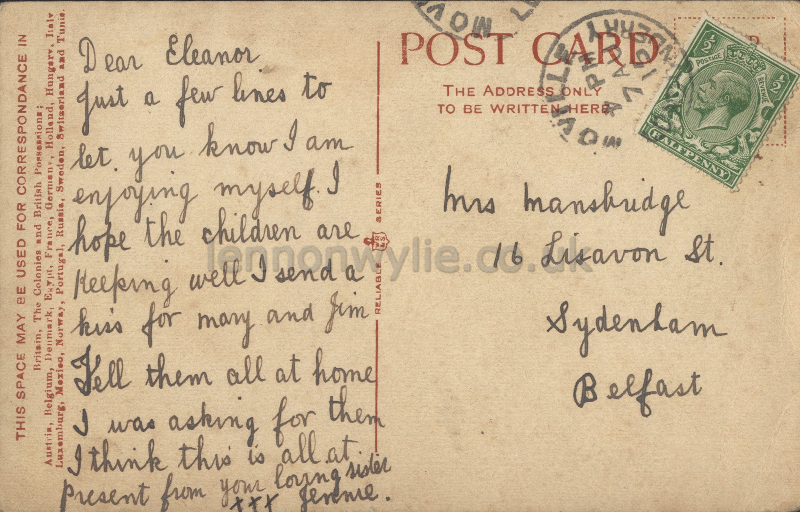 THIS SPACE MAY BE USED FOR CORRESPONDANCE IN
Britain, The Colonies and British Possessions;
Austria, Belgium, Denmark, Egypt, France, Germany, Holland, Hungary, Italy
Luxemburg, Mexico, Norway, Portugal, Russia, Sweden, Switzerland and Tunis.
Dear Eleanor
Just a few lines to
let you know I am
enjoying myself. I
hope the children are
Keeping well I send a
kiss for mary and Jim
Tell them all at home
I was asking for them
I think this is all at
present from your loving sister
xxx Jennie.
RELIABLE SERIES
POST CARD
THE ADDRESS ONLY
TO BE WRITTEN HERE
MOVILLE
½ ½
POSTAGE REVENUE
HALFPENNY
Mrs Mansbridge
16 Lisavon St.
Sydenham
Belfast
lennonwylie.co.uk